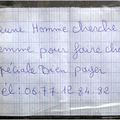 eune Homme cherche
emme pour faire cho
péciale Bien payer
él: 06 77 12 84 32